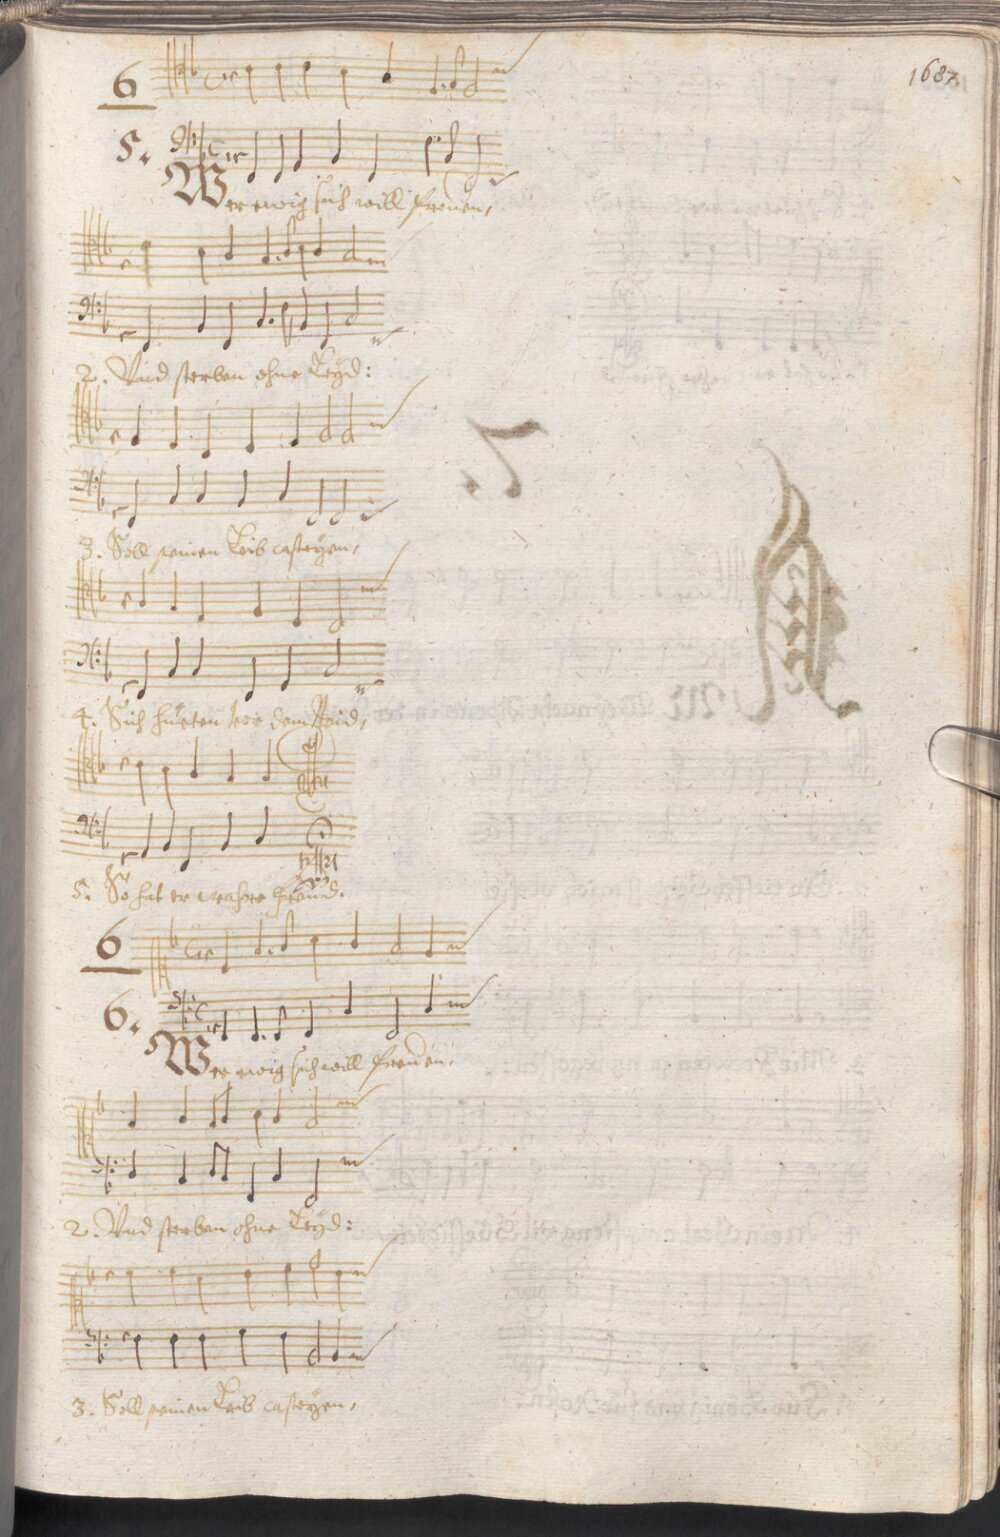 1687
6
5.
Wer ewig sich will frewen,
2. Vnd sterben ohne Leyd:
3. Soll seinen Leib casteyen,
4. Sich hüeten vor dem
5. So hat er wahre Freüd.
6
6.
Wer ewig sich will frewen,
2. Vnd sterben ohne Leyd:
3. Soll seinen Leib casteyen,